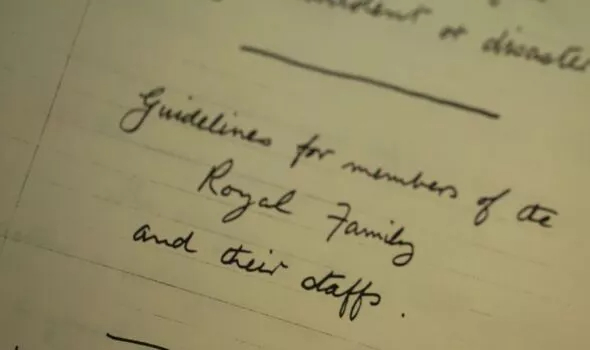 or disaster
Guidelines for members of the
Royal Family
and their staffs.